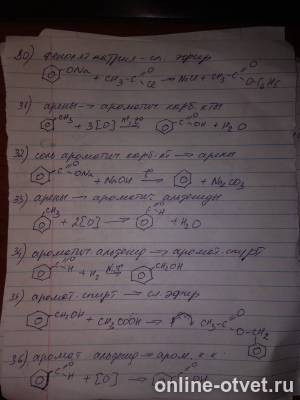 30) фенолят натрия → сл. эфир
ONa + CH₃-C O Cl → NaCl + CH₃-C O O-C₆H₅
31) арены → ароматич карб. к-ты
CH₃ + 3[O] → C O OH + H₂O
32) соль ароматич карб. к-т → арены
C O ONa + NaOH t° → + Na₂CO₃
33) арены → ароматич. альдегиды
CH₃ + 2[O] → C O H + H₂O
34) ароматич альдегид → аромат. спирт
C O H + H₂ Ni, t° → CH₂OH
35) аромат. спирт → сл эфир
CH₂OH + CH₃COOH → CH₃-C O O-CH₂
36) аромат альдегид → аром. к.к.
C O H + [O] → C O OH
online-otvet.ru